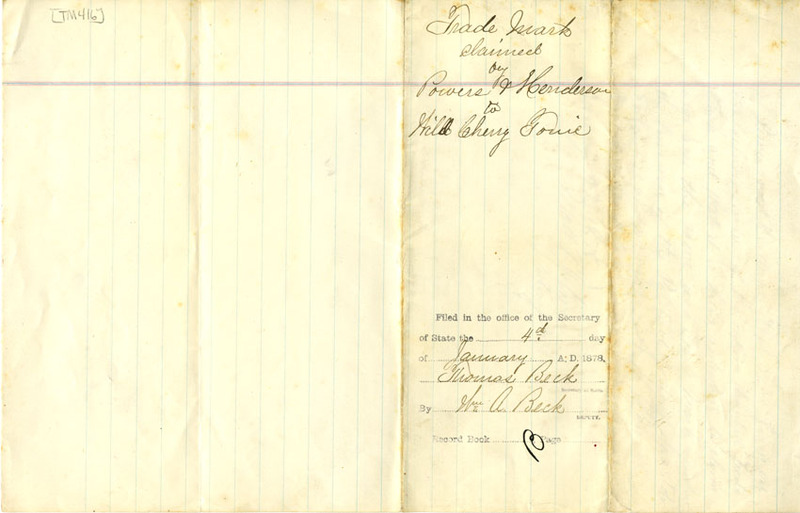 [TM416]
Trade Mark
claimed
by
Powers & Henderson
to
Wild Cherry Tonic
Filed in the office of the Secretary
of State the 4d day
of January A. D. 1878,
Thomas Beck
Secretary of State.
By Wm A. Beck
DEPUTY.
Record Book Page